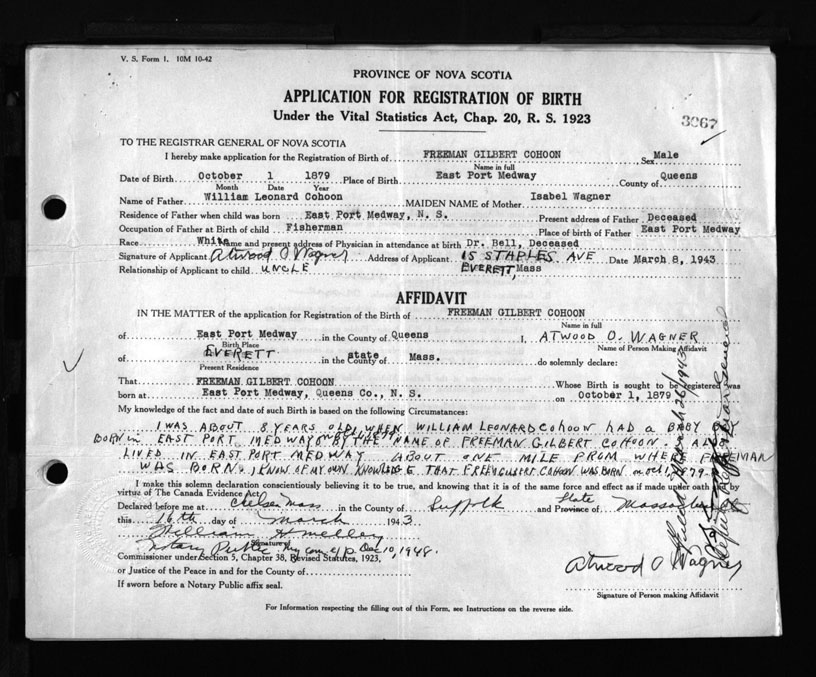 V. S. Form 1. 10M 10-42
PROVINCE OF NOVA SCOTIA
APPLICATION FOR REGISTRATION OF BIRTH
Under the Vital Statistics Act, Chap. 20, R. S. 1923
3267
TO THE REGISTRAR GENERAL OF NOVA SCOTIA
I hereby make application for the Registration of Birth of FREEMAN GILBERT COHOON Sex Male
Name in full
Date of Birth October 1 1879 Place of Birth East Port Medway County of Queens
Month Date Year
Name of Father William Leonard Cohoon MAIDEN NAME of Mother Isabel Wagner
Residence of Father when child was born East Port Medway, N. S. Present address of Father Deceased
Occupation of Father at Birth of child Fisherman Place of birth of Father East Port Medway
Race White Name and present address of Physician in attendance at birth Dr. Bell, Deceased
Signature of Applicant Atwood O Wagner Address of Applicant 15 STAPLES AVE Date March 8, 1943
Relationship of Applicant to child UNCLE EVERETT, Mass
AFFIDAVIT
IN THE MATTER of the application for Registration of the Birth of FREEMAN GILBERT COHOON
Name in full
of East Port Medway in the County of Queens I, ATWOOD O. WAGNER
Birth Place Name of Person Making Affidavit
of EVERETT in the County of state Mass. do solemnly declare:
Present Residence
That FREEMAN GILBERT COHOON Whose Birth is sought to be registered was
born at East Port Medway, Queens Co., N. S. on October 1, 1879
My knowledge of the fact and date of such Birth is based on the following Circumstances:
I WAS ABOUT 8 YEARS OLD WHEN WILLIAM LEONARD COHOON HAD A BABY BOY
BORN in EAST PORT MEDWAY on oct 1, 1879 BY THE NAME OF FREEMAN GILBERT COHOON. I ALSO
LIVED IN EAST PORT MEDWAY ABOUT ONE MILE FROM WHERE FREEMAN
WAS BORN. I KNOW OF MY OWN KNOWLEDGE THAT FREEMAN GILBERT COHOON WAS BORN on oct 1, 1879
I make this solemn declaration conscientiously believing it to be true, and knowing that it is of the same force and effect as if made under oath by
virtue of The Canada Evidence Act.
Declared before me at Chelsea Mass in the County of Suffolk and Province of State
this 16th day of March 1943.
Signature of
Notary Public My com exp Dec 10, 1948.
Commissioner under Section 5, Chapter 38, Revised Statutes, 1923,
or Justice of the Peace in and for the County of
If sworn before a Notary Public affix seal.
Atwood O Wagner
Signature of Person making Affidavit
For Information respecting the filling out of this Form, see Instructions on the reverse side.
Filed March 26/1943
Deputy Registrar General